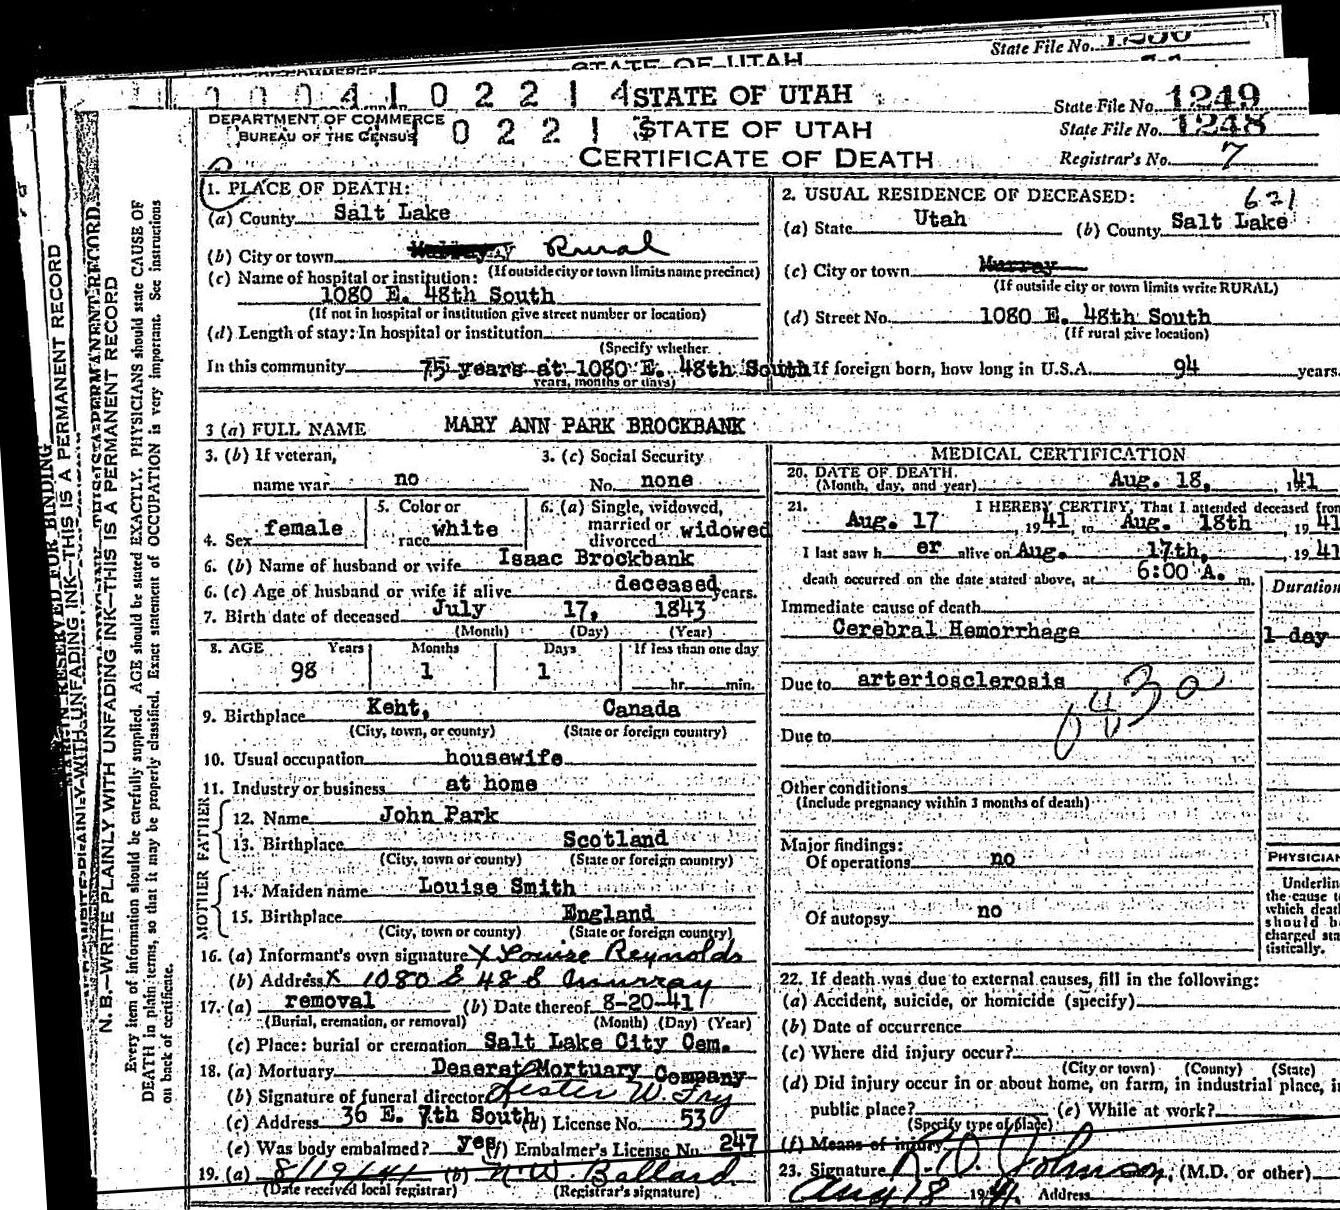 STATE OF UTAH
State File No.
0 0 0 4 1 0 2 2 1 4 STATE OF UTAH
State File No. 1249
DEPARTMENT OF COMMERCE
BUREAU OF THE CENSUS
0 2 2 1 3 STATE OF UTAH
State File No. 1248
CERTIFICATE OF DEATH
Registrar's No. 7
1. PLACE OF DEATH:
(a) County Salt Lake
(b) City or town Rural
(If outside city or town limits name precinct)
(c) Name of hospital or institution:
1080 E. 48th South
(If not in hospital or institution give street number or location)
(d) Length of stay: In hospital or institution
(Specify whether
In this community 75 years at 1080 E. 48th South
years, months or days)
2. USUAL RESIDENCE OF DECEASED:
621
(a) State Utah (b) County Salt Lake
(c) City or town Murray
(If outside city or town limits write RURAL)
(d) Street No. 1080 E. 48th South
(If rural give location)
If foreign born, how long in U.S.A. 94 years.
3 (a) FULL NAME MARY ANN PARK BROCKBANK
3. (b) If veteran,
name war no
3. (c) Social Security
No. none
4. Sex female
5. Color or
race white
6. (a) Single, widowed,
married or
divorced widowed
6. (b) Name of husband or wife Isaac Brockbank
6. (c) Age of husband or wife if alive deceased years.
7. Birth date of deceased July 17, 1843
(Month) (Day) (Year)
8. AGE Years Months Days If less than one day
98 1 1 hr. min.
9. Birthplace Kent, Canada
(City, town, or county) (State or foreign country)
10. Usual occupation housewife
11. Industry or business at home
FATHER
12. Name John Park
13. Birthplace Scotland
(City, town or county) (State or foreign country)
MOTHER
14. Maiden name Louise Smith
15. Birthplace England
(City, town or county) (State or foreign country)
16. (a) Informant's own signature X Louise Reynolds
(b) Address X 1080 E 48 S Murray
17. (a) removal (b) Date thereof 8-20-41
(Burial, cremation, or removal) (Month) (Day) (Year)
(c) Place: burial or cremation Salt Lake City Cem.
18. (a) Mortuary Deseret Mortuary Company
(b) Signature of funeral director
(c) Address 36 E. 7th South (d) License No. 530
(e) Was body embalmed? yes (f) Embalmer's License No. 247
19. (a) 8/19/41 (b) N. W. Ballard
(Date received local registrar) (Registrar's signature)
MEDICAL CERTIFICATION
20. DATE OF DEATH.
(Month, day, and year) Aug. 18, 1941
21. I HEREBY CERTIFY, That I attended deceased from
Aug. 17 , 1941, to Aug. 18th , 1941
I last saw her alive on Aug. 17th, , 1941
death occurred on the date stated above, at 6:00 A. m.
Duration
Immediate cause of death
Cerebral Hemorrhage 1 day
Due to arteriosclerosis
Due to
Other conditions
(Include pregnancy within 3 months of death)
Major findings:
Of operations no
Of autopsy no
PHYSICIAN
Underlin
the cause t
which deat
should b
charged sta
tistically.
22. If death was due to external causes, fill in the following:
(a) Accident, suicide, or homicide (specify)
(b) Date of occurrence
(c) Where did injury occur?
(City or town) (County) (State)
(d) Did injury occur in or about home, on farm, in industrial place, in
public place? (e) While at work?
(Specify type of place)
(f) Means of injury
23. Signature Johnson, (M.D. or other)
Aug 18 1941 Address
MARGIN RESERVED FOR BINDING
N. B.—WRITE PLAINLY WITH UNFADING INK—THIS IS A PERMANENT RECORD
Every item of information should be carefully supplied. AGE should be stated EXACTLY. PHYSICIANS should state CAUSE OF
DEATH in plain terms, so that it may be properly classified. Exact statement of OCCUPATION is very important. See instructions
on back of certificate.